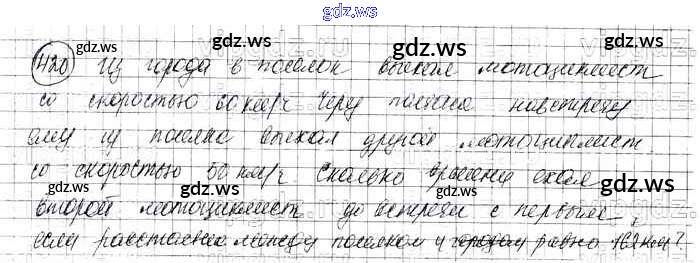 gdz.ws
420 Из города в поселок выехал мотоциклист
со скоростью 60 км/ч Через полчаса навстречу
ему из поселка выехал другой мотоциклист
со скоростью 50 км/ч Сколько времени ехал
второй мотоциклист до встречи с первым,
если расстояние между поселком и городом равно 162 км?
gdz.ws
gdz.ws
gdz.ws
gdz.ws
gdz.ws
gdz.ws
gdz.ws
gdz.ws